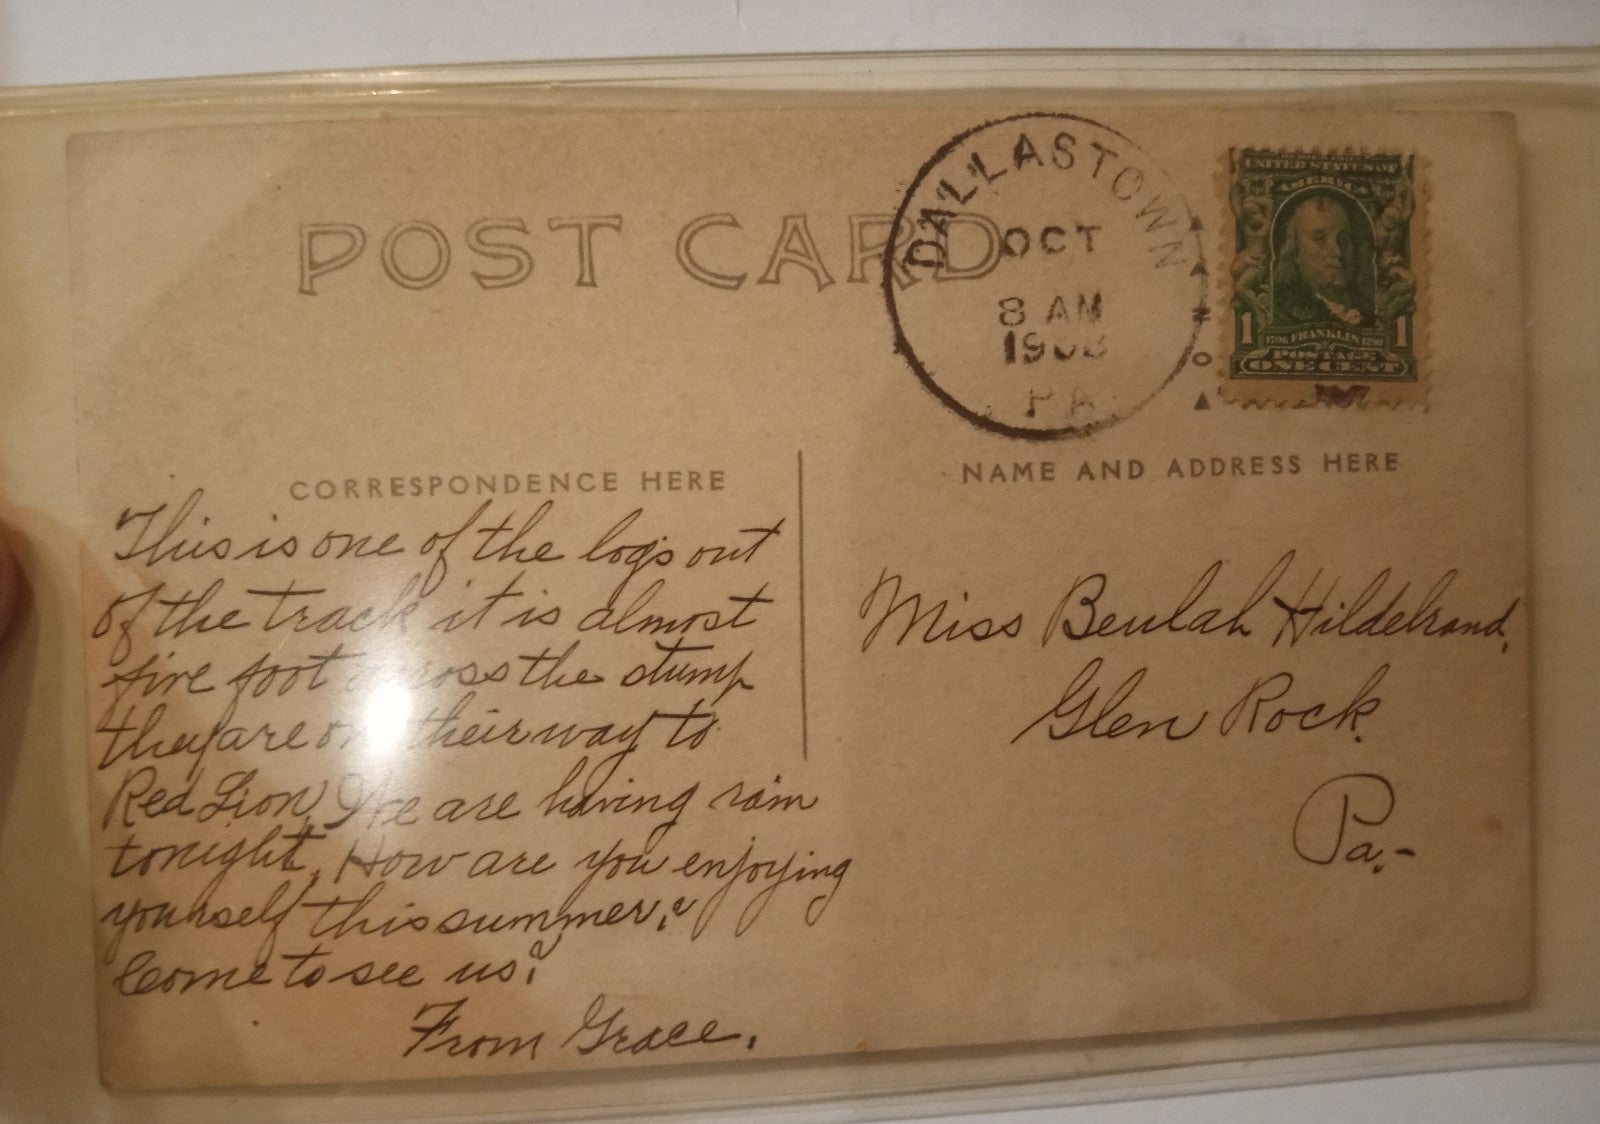 POST CARD
DALLASTOWN
OCT
8 AM
1908
PA
UNITED STATES OF
AMERICA
1 FRANKLIN 1
POSTAGE
ONE CENT
CORRESPONDENCE HERE
NAME AND ADDRESS HERE
This is one of the logs out
of the track it is almost
five foot across the stump
they are on their way to
Red Lion, We are having rain
tonight, How are you enjoying
yourself this summer?
Come to see us?
From Grace.
Miss Beulah Hildebrand,
Glen Rock.
Pa.-